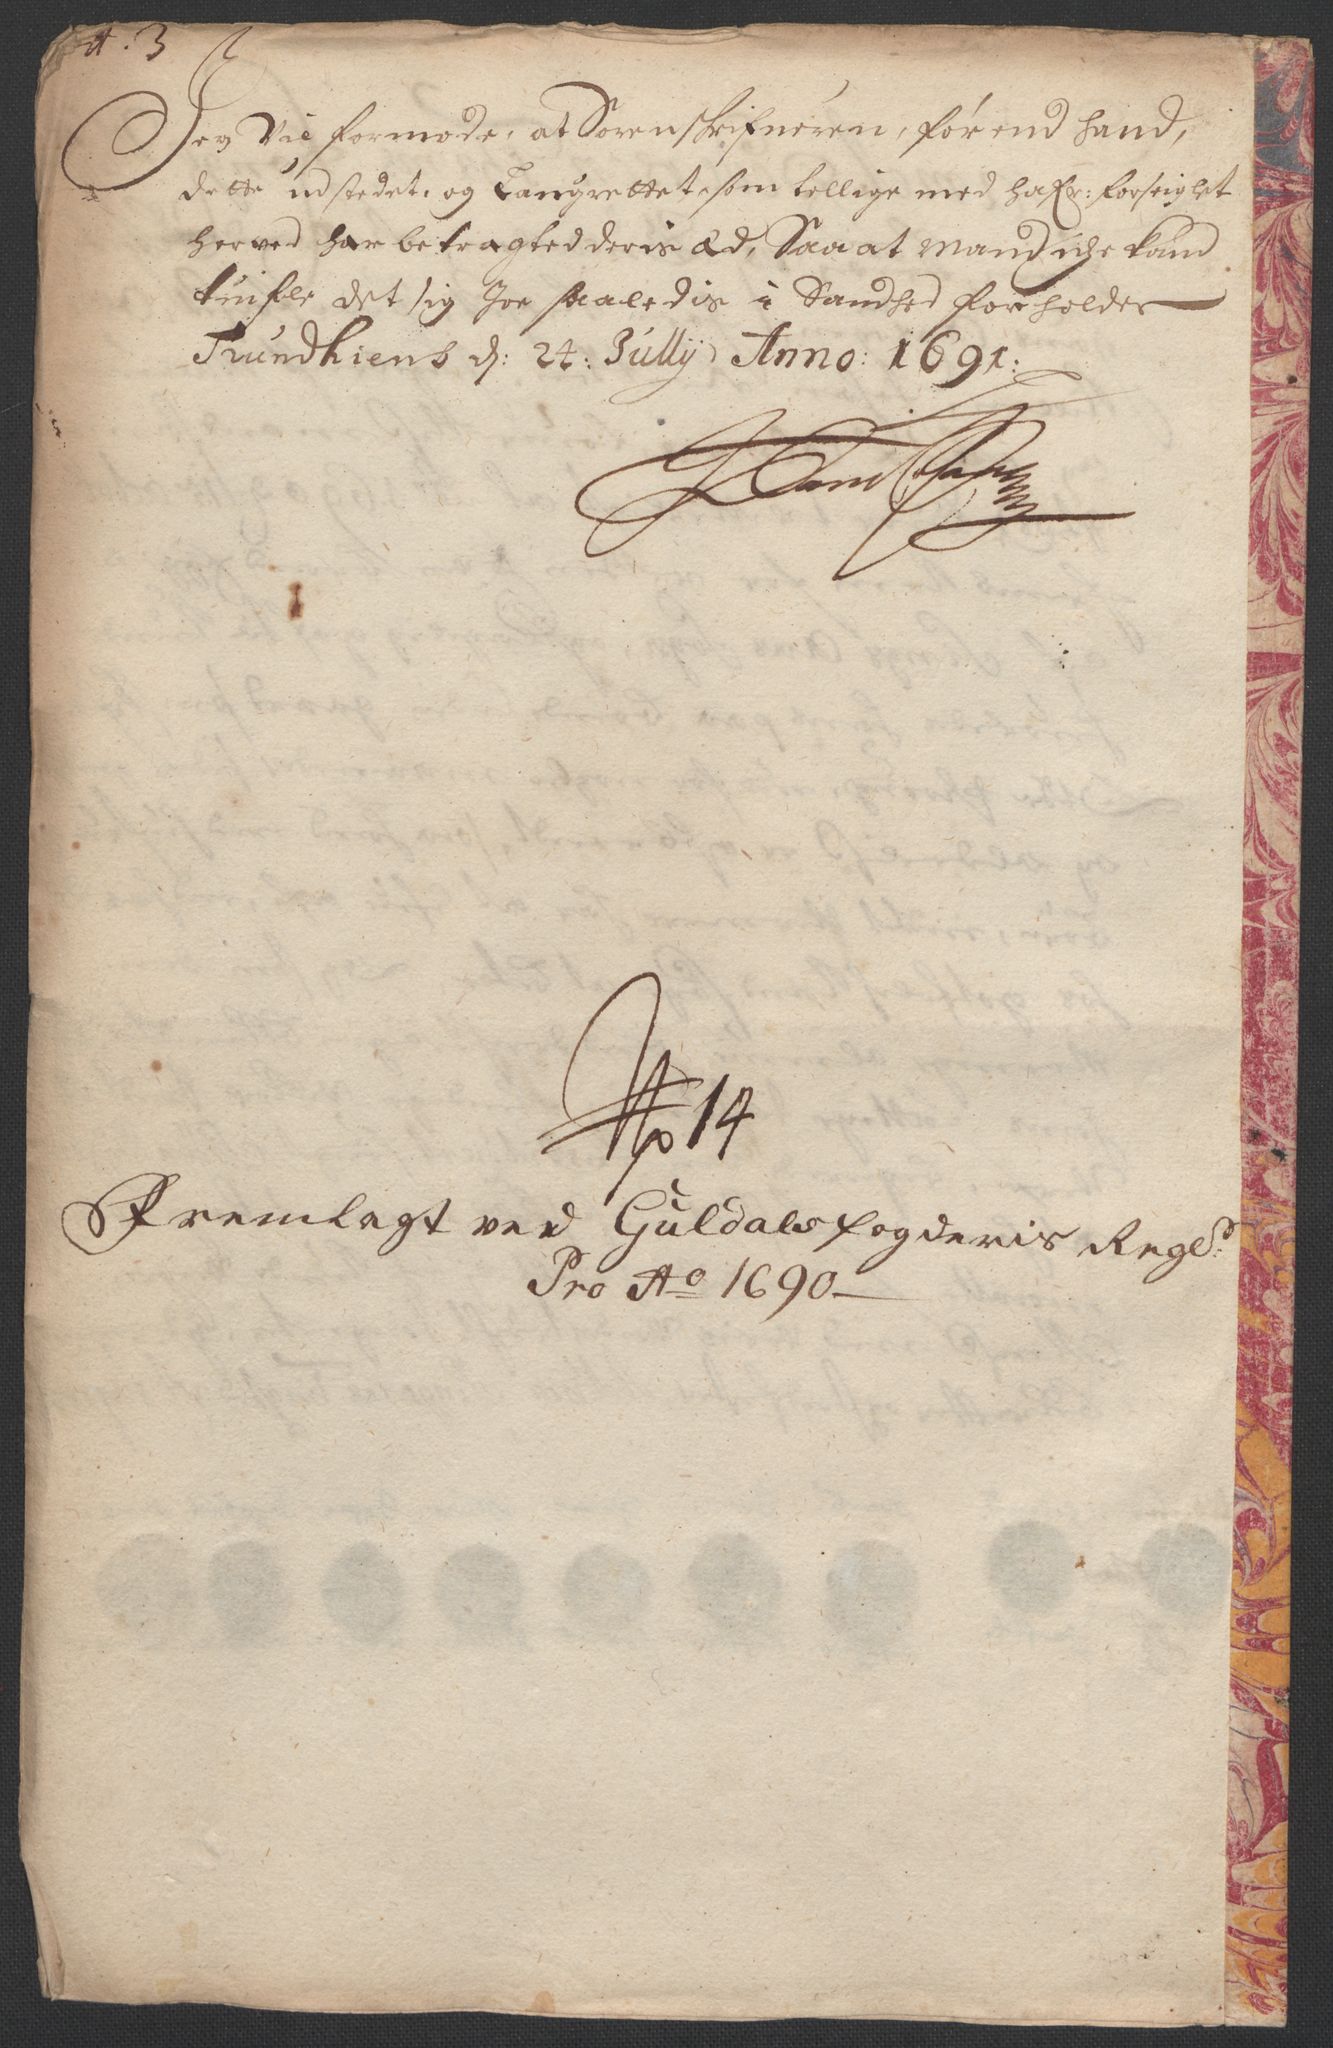 A. 3
Jeg vil formode, at Sorenskrifueren, før end hand,
dette udstedet, og Laugrettet, som tellige med ham: forseiglet
herved har betragted deris Æd, Saa at mand icke kand
tuifle det sig Joe saaledis i Sandhed forholder
Trundhiem d: 24: Jullÿ Anno: 1691:
No 14
Fremlagt ved Guldals fogderis Regls:
Pro Ao 1690